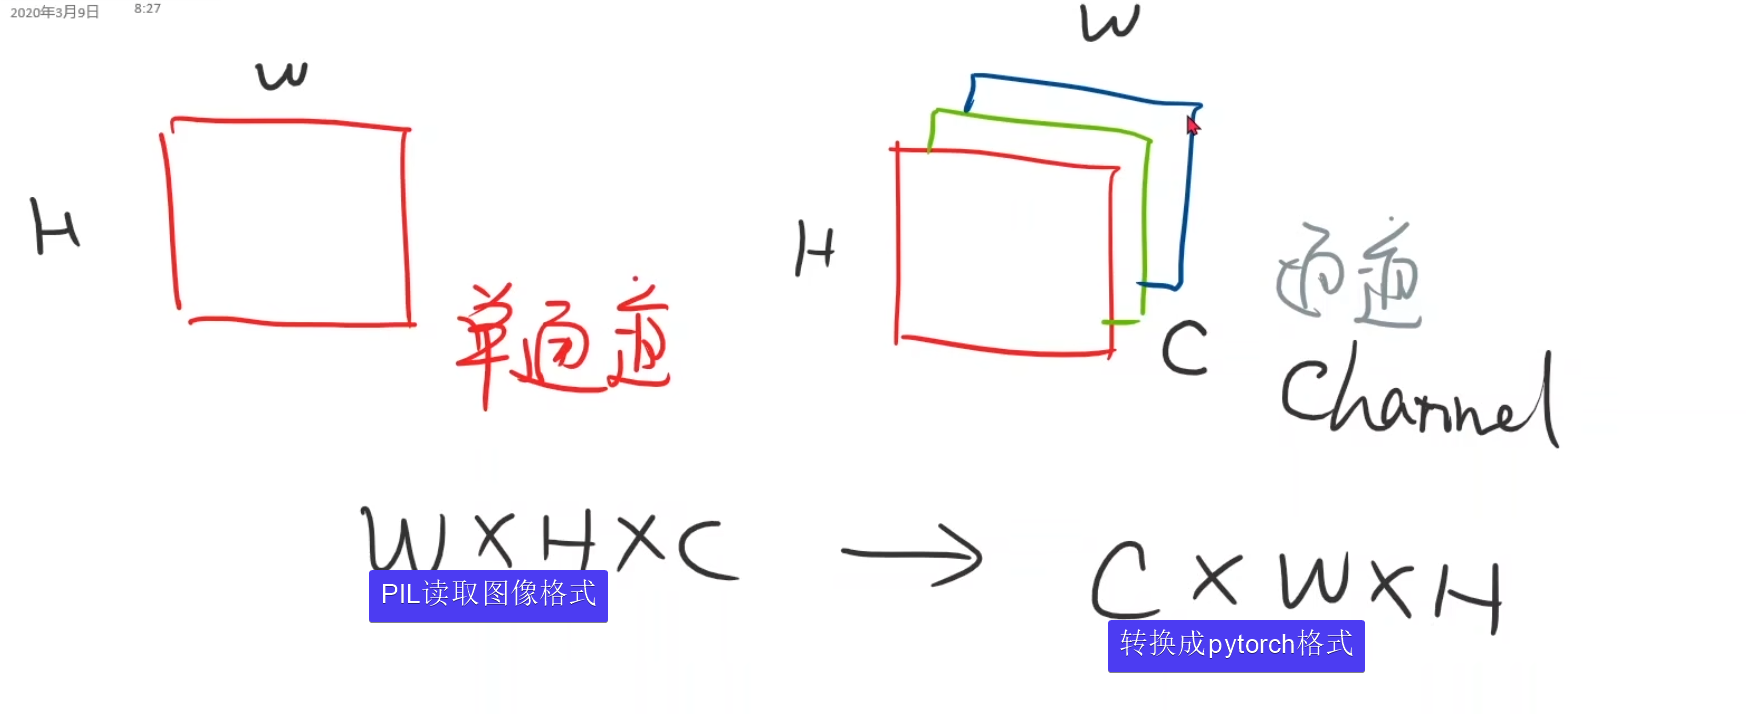 2020年3月9日 8:27
W
W
H
H
单通道
通道
C
Channel
W×H×C → C×W×H
PIL读取图像格式
转换成pytorch格式